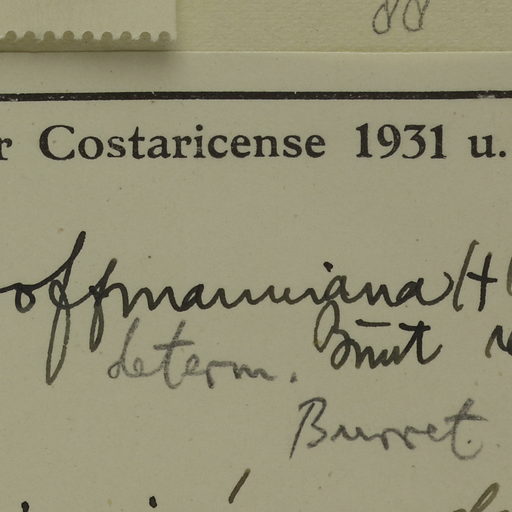 88
r Costaricense 1931 u.
offmanniana (H
determ.
Burret